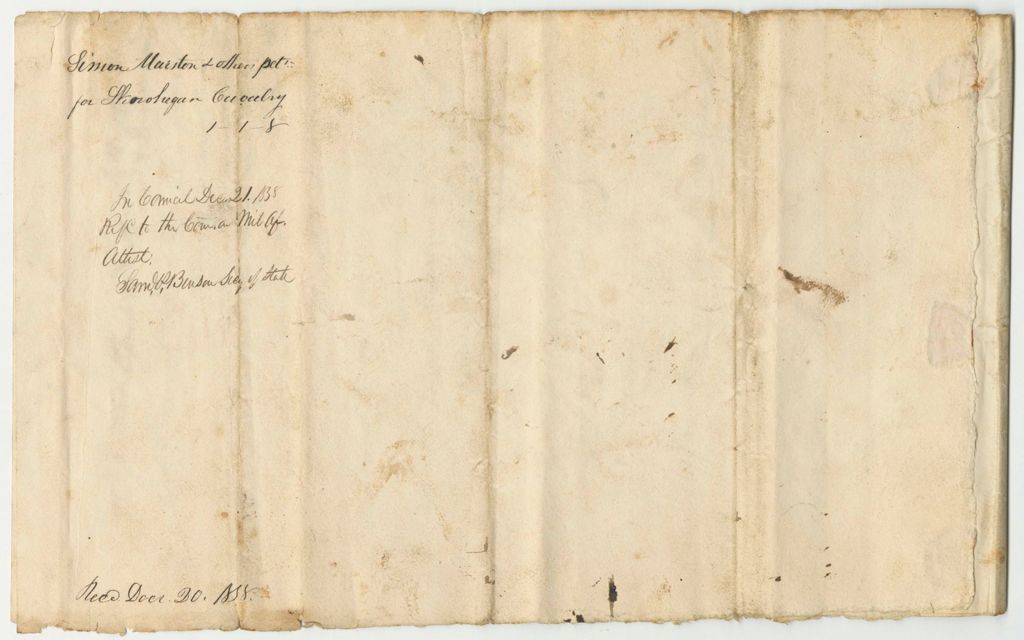 Simon Marston & others petn.
for Skowhegan Cavalry
1-1-8
In Council Dec. 21. 1838
Ref'd to the Com. on Mil Af.
Attest.
Sam'l P. Benson Secy of State
Recd. Decr. 20. 1838.